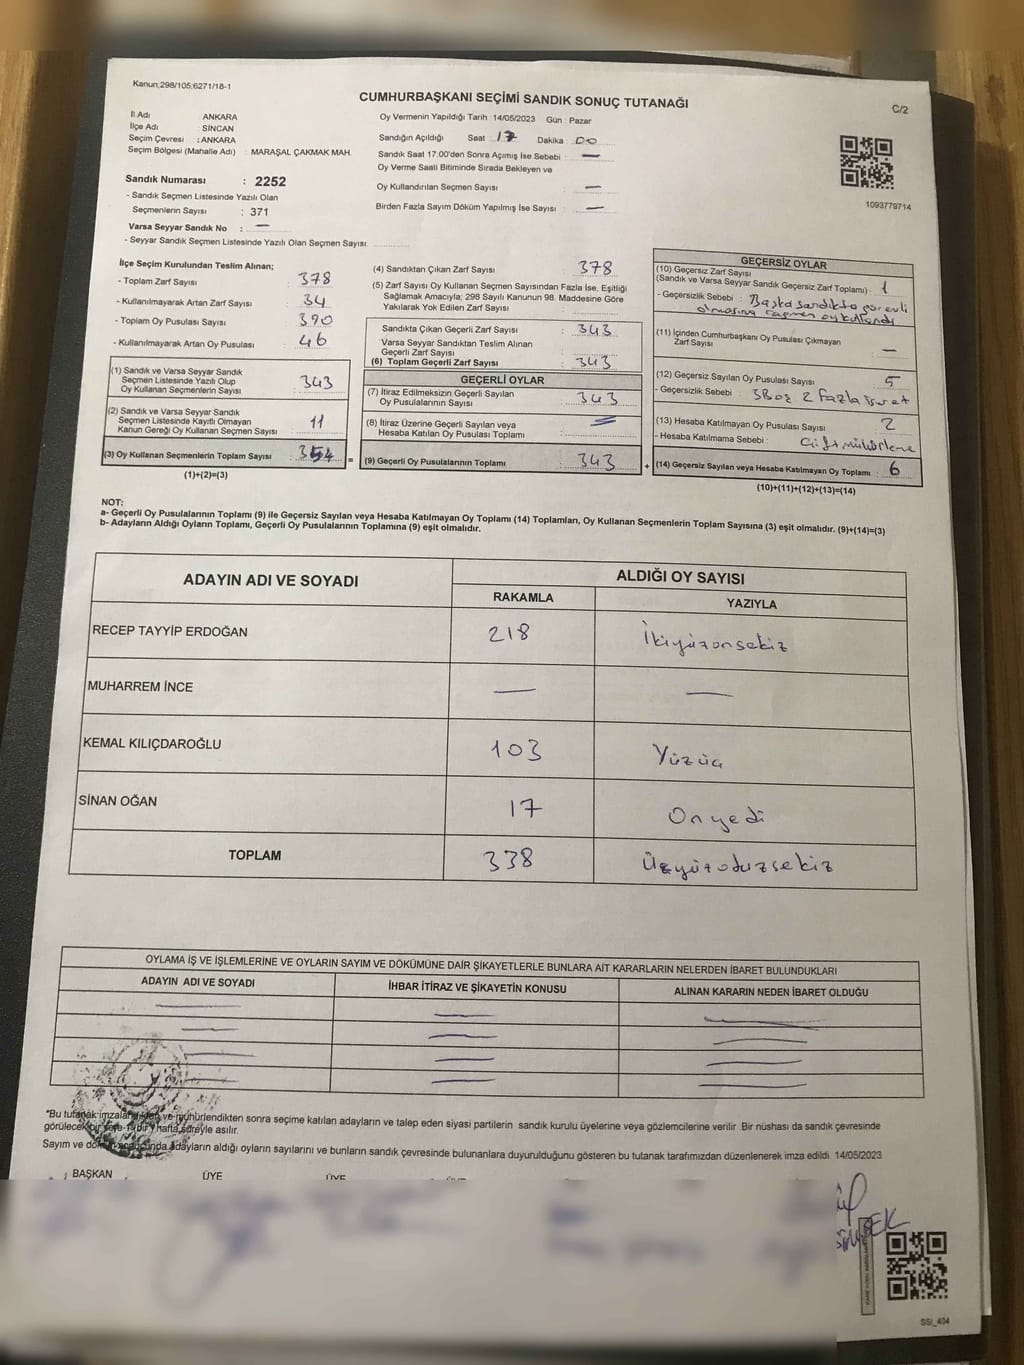 Kanun;298/105;6271/18-1
CUMHURBAŞKANI SEÇİMİ SANDIK SONUÇ TUTANAĞI
C/2
İl Adı : ANKARA
İlçe Adı : SİNCAN
Seçim Çevresi : ANKARA
Seçim Bölgesi (Mahalle Adı) : MARAŞAL ÇAKMAK MAH.
Sandık Numarası : 2252
- Sandık Seçmen Listesinde Yazılı Olan
Seçmenlerin Sayısı : 371
Varsa Seyyar Sandık No : —
- Seyyar Sandık Seçmen Listesinde Yazılı Olan Seçmen Sayısı:
Oy Vermenin Yapıldığı Tarih : 14/05/2023 Gün : Pazar
Sandığın Açıldığı Saat : 17 Dakika : 00
Sandık Saat 17:00'den Sonra Açımış İse Sebebi : —
Oy Verme Saati Bitiminde Sırada Bekleyen ve
Oy Kullandırılan Seçmen Sayısı : —
Birden Fazla Sayım Döküm Yapılmış İse Sayısı : —
1093779714
İlçe Seçim Kurulundan Teslim Alınan;
- Toplam Zarf Sayısı : 378
- Kullanılmayarak Artan Zarf Sayısı : 34
- Toplam Oy Pusulası Sayısı : 390
- Kullanılmayarak Artan Oy Pusulası : 46
(1) Sandık ve Varsa Seyyar Sandık
Seçmen Listesinde Yazılı Olup
Oy Kullanan Seçmenlerin Sayısı : 343
(2) Sandık ve Varsa Seyyar Sandık
Seçmen Listesinde Kayıtlı Olmayan
Kanun Gereği Oy Kullanan Seçmen Sayısı : 11
(3) Oy Kullanan Seçmenlerin Toplam Sayısı : 354
(1)+(2)=(3)
=
(4) Sandıktan Çıkan Zarf Sayısı : 378
(5) Zarf Sayısı Oy Kullanan Seçmen Sayısından Fazla İse, Eşitliği
Sağlamak Amacıyla; 298 Sayılı Kanunun 98. Maddesine Göre
Yakılarak Yok Edilen Zarf Sayısı :
Sandıkta Çıkan Geçerli Zarf Sayısı : 343
Varsa Seyyar Sandıktan Teslim Alınan
Geçerli Zarf Sayısı :
(6) Toplam Geçerli Zarf Sayısı : 343
GEÇERLİ OYLAR
(7) İtiraz Edilmeksizin Geçerli Sayılan
Oy Pusulalarının Sayısı : 343
(8) İtiraz Üzerine Geçerli Sayılan veya
Hesaba Katılan Oy Pusulası Toplamı :
(9) Geçerli Oy Pusulalarının Toplamı : 343
+
GEÇERSİZ OYLAR
(10) Geçersiz Zarf Sayısı
(Sandık ve Varsa Seyyar Sandık Geçersiz Zarf Toplamı) : 1
- Geçersizlik Sebebi : Başka sandıkta görevli
olmasına rağmen oy kullandı
(11) İçinden Cumhurbaşkanı Oy Pusulası Çıkmayan
Zarf Sayısı : —
(12) Geçersiz Sayılan Oy Pusulası Sayısı : 5
- Geçersizlik Sebebi : 3Boş 2 fazla işaret
(13) Hesaba Katılmayan Oy Pusulası Sayısı : 2
- Hesaba Katılmama Sebebi : Çift mühürleme
(14) Geçersiz Sayılan veya Hesaba Katılmayan Oy Toplamı : 6
(10)+(11)+(12)+(13)=(14)
NOT:
a- Geçerli Oy Pusulalarının Toplamı (9) ile Geçersiz Sayılan veya Hesaba Katılmayan Oy Toplamı (14) Toplamları, Oy Kullanan Seçmenlerin Toplam Sayısına (3) eşit olmalıdır. (9)+(14)=(3)
b- Adayların Aldığı Oyların Toplamı, Geçerli Oy Pusulalarının Toplamına (9) eşit olmalıdır.
ADAYIN ADI VE SOYADI
ALDIĞI OY SAYISI
RAKAMLA YAZIYLA
RECEP TAYYİP ERDOĞAN 218 İkiyüzonsekiz
MUHARREM İNCE — —
KEMAL KILIÇDAROĞLU 103 Yüzüç
SİNAN OĞAN 17 Onyedi
TOPLAM 338 Üçyüzotuzsekiz
OYLAMA İŞ VE İŞLEMLERİNE VE OYLARIN SAYIM VE DÖKÜMÜNE DAİR ŞİKAYETLERLE BUNLARA AİT KARARLARIN NELERDEN İBARET BULUNDUKLARI
ADAYIN ADI VE SOYADI İHBAR İTİRAZ VE ŞİKAYETİN KONUSU ALINAN KARARIN NEDEN İBARET OLDUĞU
*Bu tutanak imzalandıktan ve mühürlendikten sonra seçime katılan adayların ve talep eden siyasi partilerin sandık kurulu üyelerine veya gözlemcilerine verilir. Bir nüshası da sandık çevresinde
görülecek bir yere 1 (bir) hafta süreyle asılır.
Sayım ve döküm sonucunda adayların aldığı oyların sayılarını ve bunların sandık çevresinde bulunanlara duyurulduğunu gösteren bu tutanak tarafımızdan düzenlenerek imza edildi. 14/05/2023
BAŞKAN ÜYE ÜYE ÜYE
SSI_404